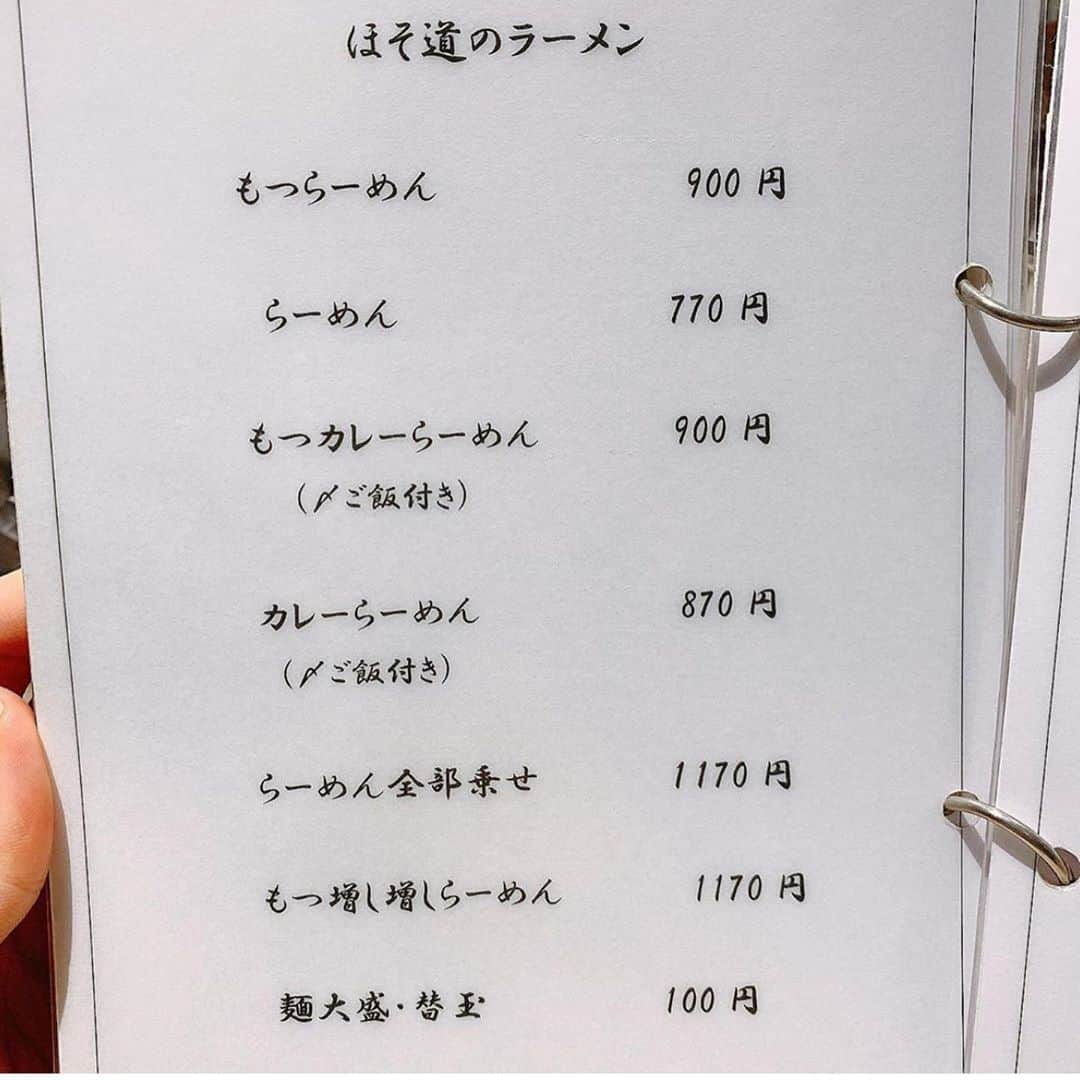 ほそ道のラーメン
もつらーめん 900 円
らーめん 770 円
もつカレーらーめん 900 円
(〆ご飯付き)
カレーらーめん 870 円
(〆ご飯付き)
らーめん全部乗せ 1170 円
もつ増し増しらーめん 1170 円
麺大盛・替玉 100 円